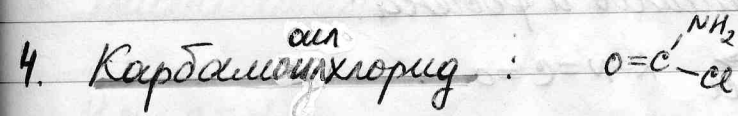 оил
4. Карбамоилхлорид : O=C NH2 -Cl